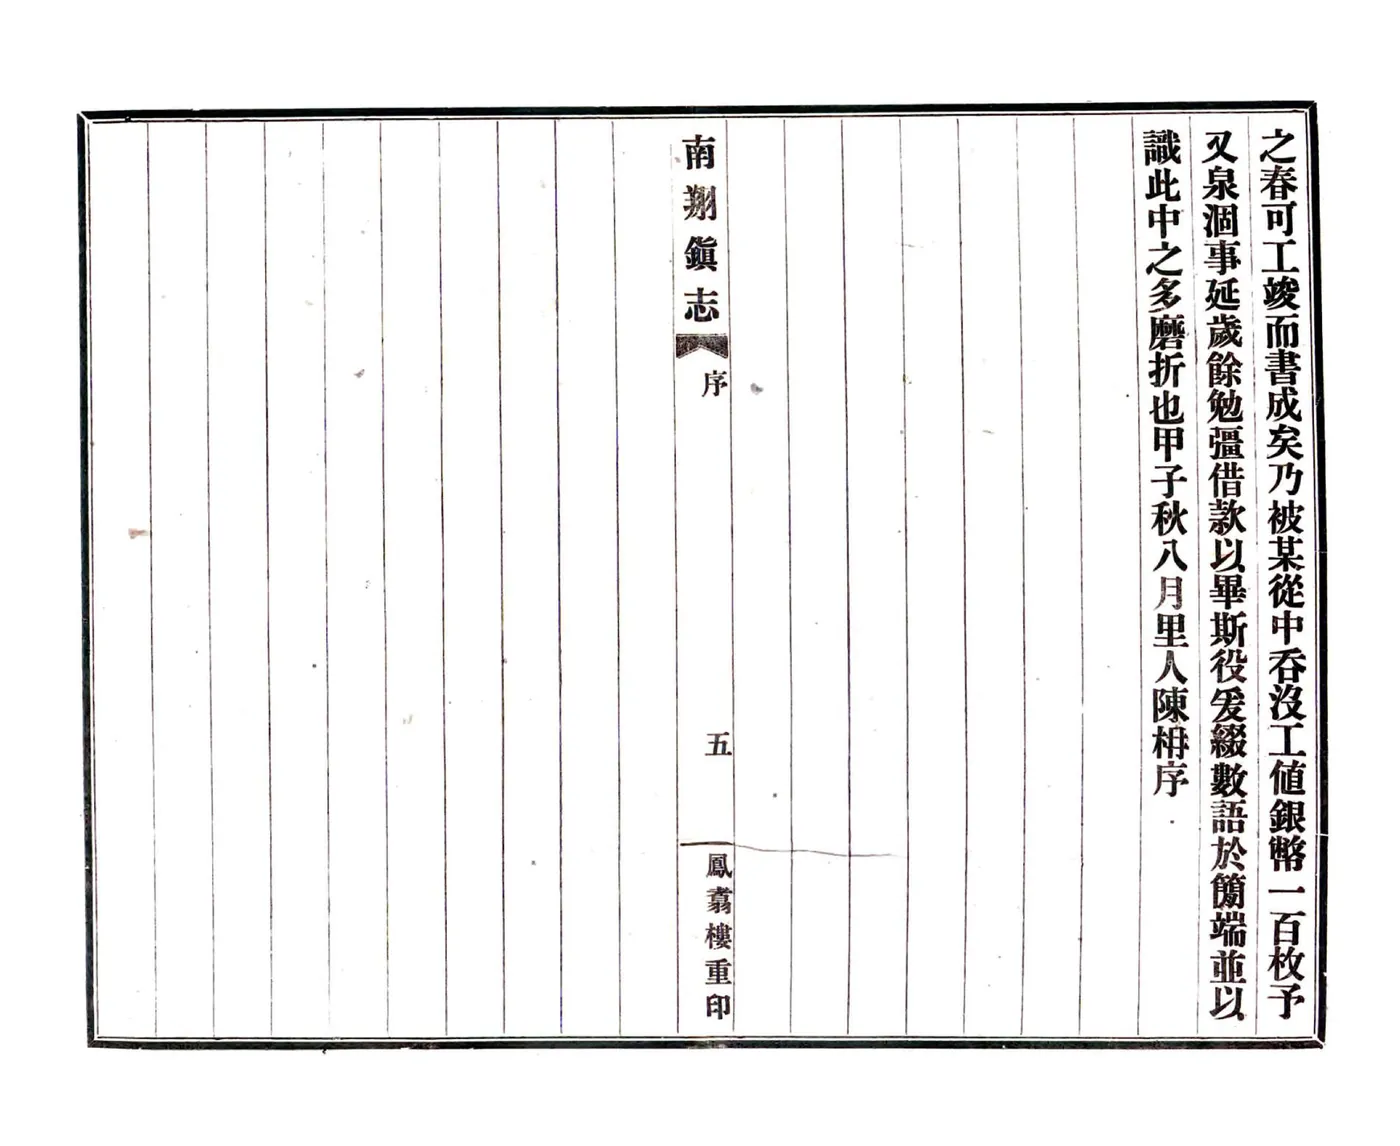 之春可工竣而書成矣乃被某從中吞沒工値銀幣一百枚予
又泉涸事延歲餘勉彊借款以畢斯役爰綴數語於簡端並以
識此中之多磨折也甲子秋八月里人陳枏序
南翔鎭志
序
五
鳳翥樓重印